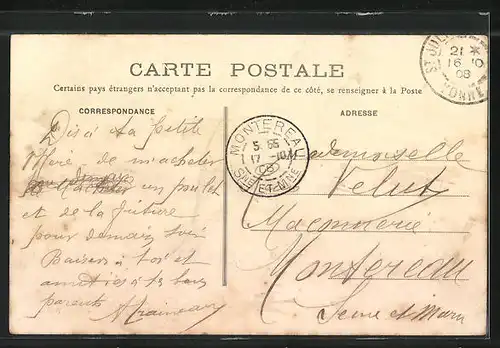 CARTE POSTALE
Certains pays étrangers n'acceptant pas la correspondance de ce côté, se renseigner à la Poste
CORRESPONDANCE
ADRESSE
Dis à ta petite
de m'acheter
un poulet
et de la friture
pour demain soir
Baisers à toi et
amitiés à tes bons
parents
Mademoiselle
Velut
Maçonnerie
Montereau
Seine et Marne
MONTEREAU
5 55
17 - 10
08
SEINE-ET-MARNE
ST JUL
21 *
16 10
08
YONNE